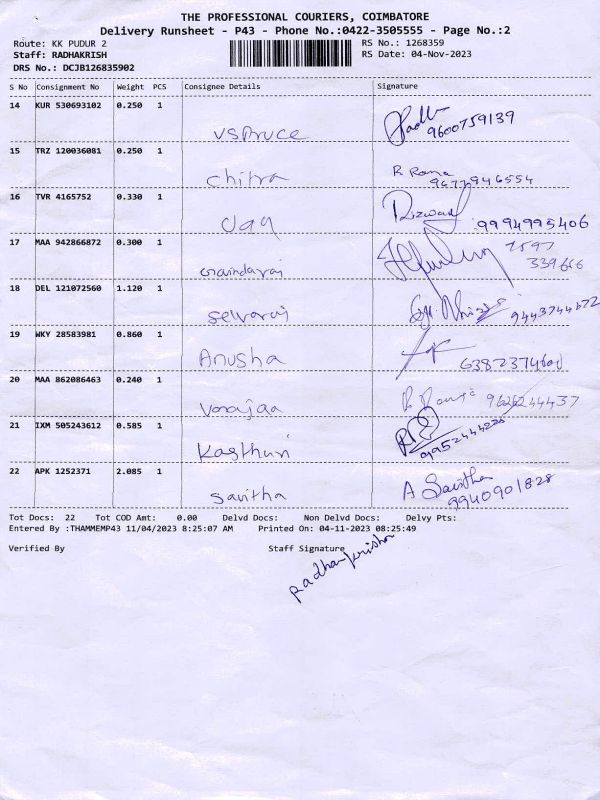 THE PROFESSIONAL COURIERS, COIMBATORE
Delivery Runsheet - P43 - Phone No.:0422-3505555 - Page No.:2
Route: KK PUDUR 2 RS No.: 1268359
Staff: RADHAKRISH RS Date: 04-Nov-2023
DRS No.: DCJB126835902
S No Consignment No Weight PCS Consignee Details Signature
14 KUR 530693102 0.250 1
9600759139
15 TRZ 120036081 0.250 1 Chitra R Rama
9677946554
16 TVR 4165752 0.330 1
9994995406
17 MAA 942866872 0.300 1
18 DEL 121072560 1.120 1 selvaraj
19 WKY 28583981 0.860 1 Anusha
20 MAA 862086463 0.240 1
21 IXM 505243612 0.585 1 Kasthuri
22 APK 1252371 2.085 1 Savitha A Savitha
9940901828
Tot Docs: 22 Tot COD Amt: 0.00 Delvd Docs: Non Delvd Docs: Delvy Pts:
Entered By :THAMMEMP43 11/04/2023 8:25:07 AM Printed On: 04-11-2023 08:25:49
Verified By Staff Signature